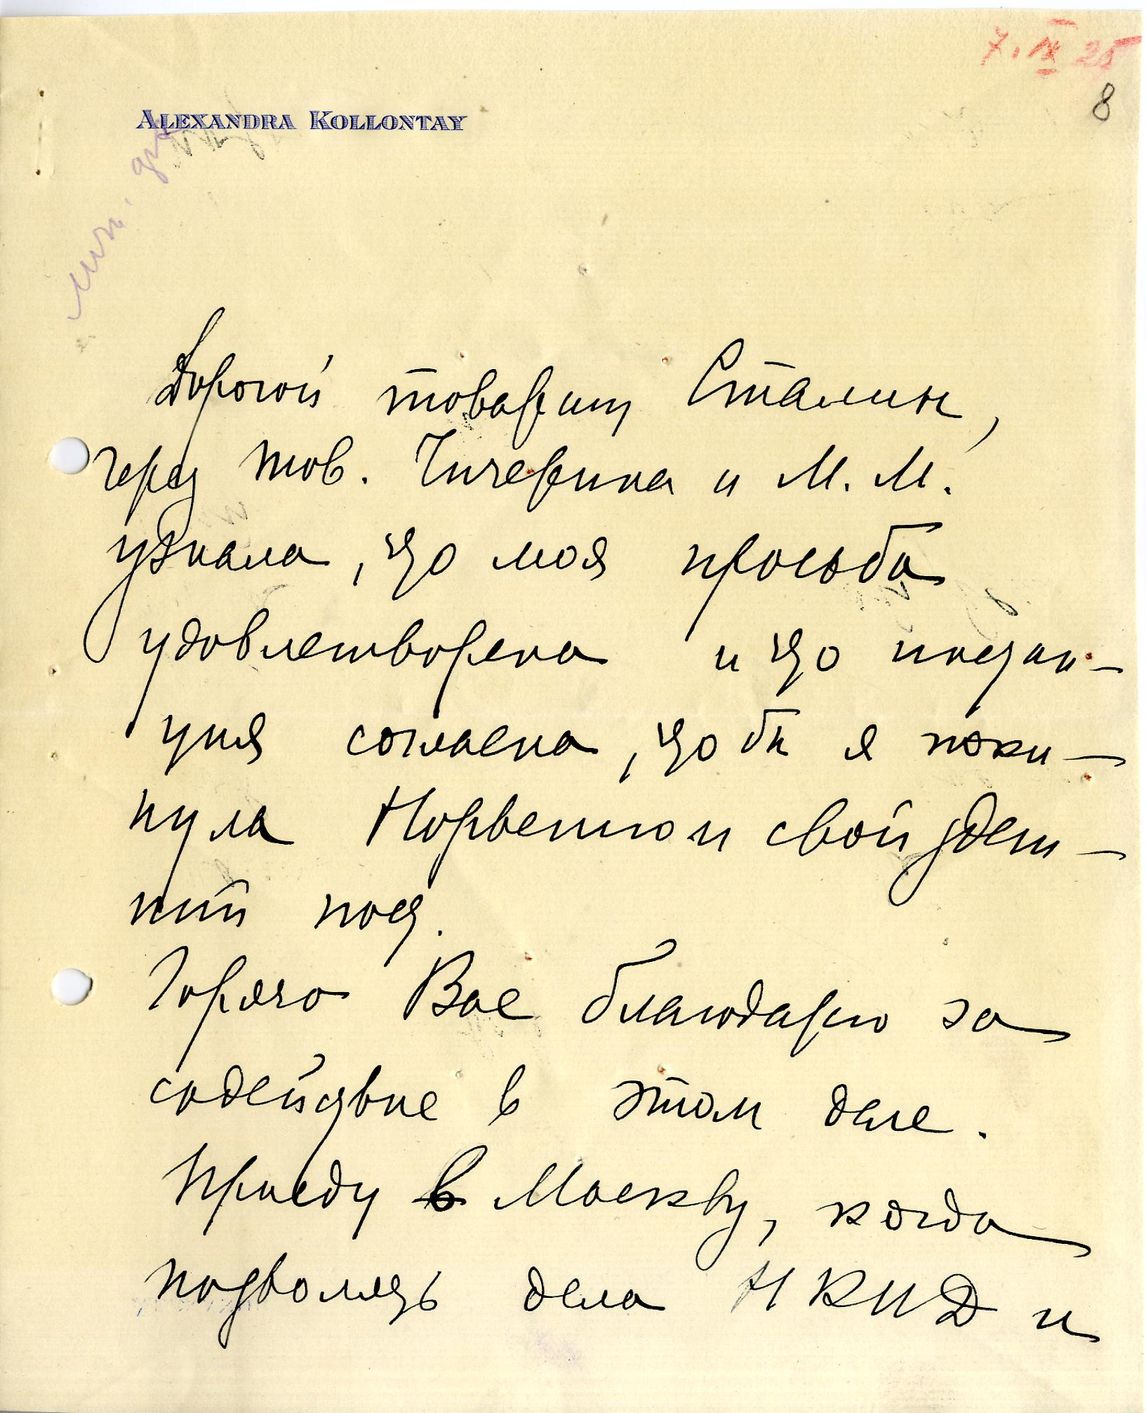 7. IX 25
8
ALEXANDRA KOLLONTAY
Дорогой товарищ Сталин,
через тов. Чичерина и М. М.
узнала, что моя просьба
удовлетворена и что инстан-
ция согласна, что бы я поки-
нула Норвегию и свой здеш-
ний пост.
Горячо Вас благодарю за
содействие в этом деле.
Приеду в Москву, когда
позволять дела НКИД и